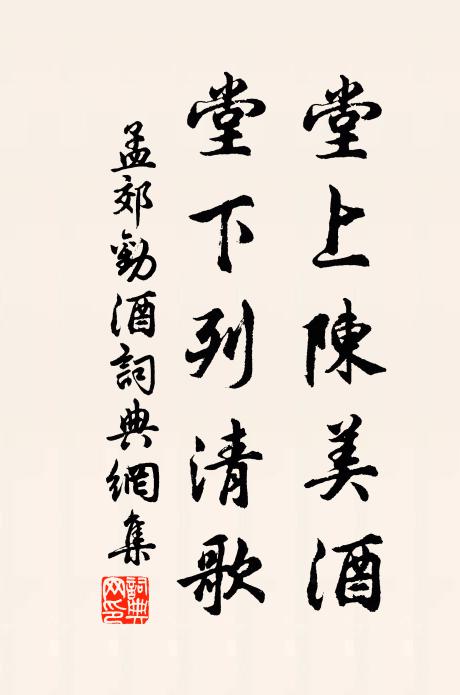 堂上陳美酒
堂下列清歌
孟郊勸酒詞典網集
詞典网印